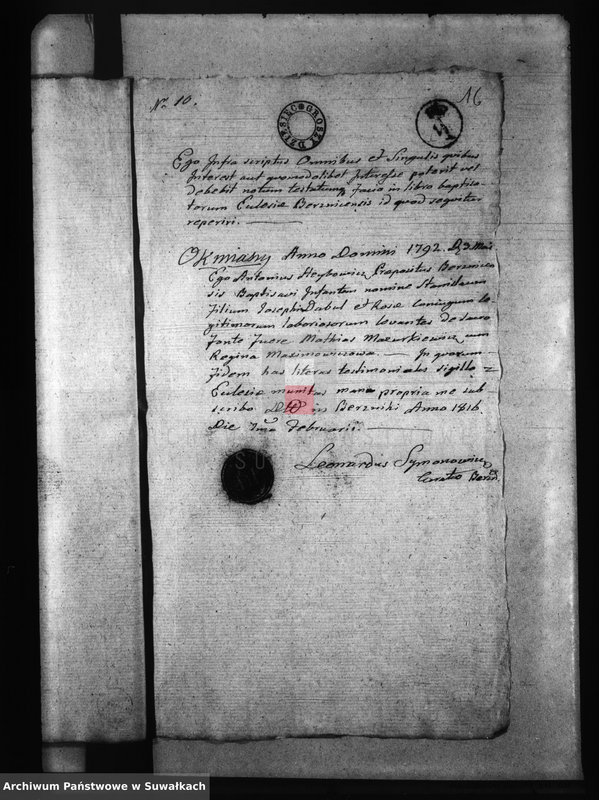 No 10.
16
DZIESIĘC GROSZY
Ego Infra scriptus Omnibus et Singulis quibus
Interest aut quomodolibet Interesse poterit vel
debebit notum testatumq facio in libro baptisa
torum Eclesiæ Berznicensis id quod sequitur
reperiri.
Okmiany Anno Domini 1792. D. 3 Maii
Ego Antonius Heybowicz Præpositus Berznicen
sis Baptisavi Infantem nomine Stanislaum
Filium Josephi Dabul et Rosæ Coniugum le
gitimorum laboriosorum levantes de sacro
fonte fuere Mathias Mazurkiewicz cum
Regina Maximowiczowa. In quorum
fidem has literas testimoniales sigillo
Eclesiæ munitas manu propria me sub
scribo Dtt in Berzniki Anno 1816
Die 7ma Februarii.
Leonardus Symonowicz
Curatus Berz.
Archiwum Państwowe w Suwałkach